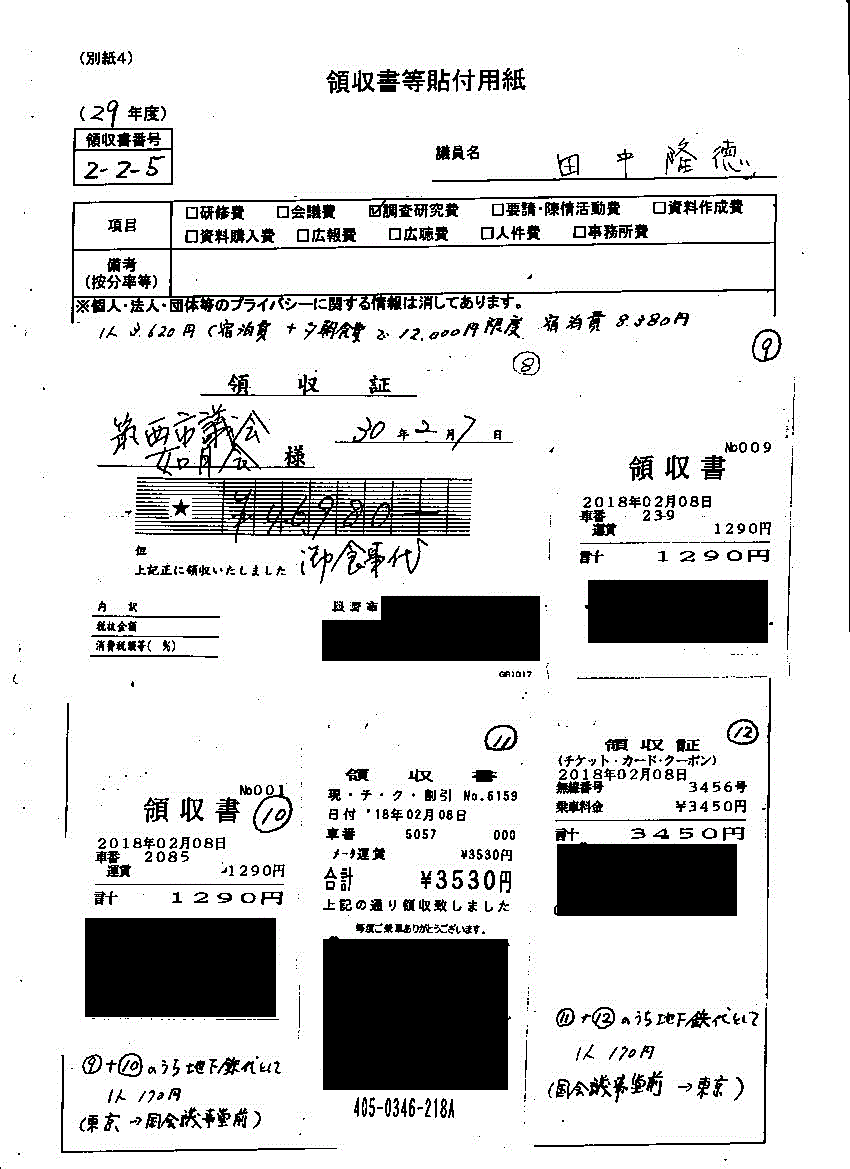 (別紙4)
領収書等貼付用紙
(29年度)
領収書番号
2-2-5
議員名 田中隆徳
項目
□研修費 □会議費 ☑調査研究費 □要請・陳情活動費 □資料作成費
□資料購入費 □広報費 □広聴費 □人件費 □事務所費
備考
(按分率等)
※個人・法人・団体等のプライバシーに関する情報は消してあります。
1人3.620円(宿泊費+夕朝食費で12,000円限度 宿泊費8.380円
⑧
⑨
領収証
筑西市議会
如月会 様
30年2月7日
★ ¥46980-
但 御食事代
上記正に領収いたしました
内訳
税抜金額
消費税額等( %)
GR1017
No009
領収書
2018年02月08日
車番 239
運賃 1290円
合計 1290円
No001
領収書 ⑩
2018年02月08日
車番 2085
運賃 1290円
合計 1290円
⑨+⑩のうち地下鉄代として
1人 170円
(東京→国会議事堂前)
⑪
領収書
現・チ・ク・割引 No.6159
日付 '18年02月08日
車番 5057 000
メータ運賃 ¥3530円
合計 ¥3530円
上記の通り領収致しました
毎度ご乗車ありがとうございます。
405-0346-218A
⑫
領収証
(チケット・カード・クーポン)
2018年02月08日
無線番号 3456号
乗車料金 ¥3450円
合計 3450円
⑪+⑫のうち地下鉄代として
1人 170円
(国会議事堂前→東京)